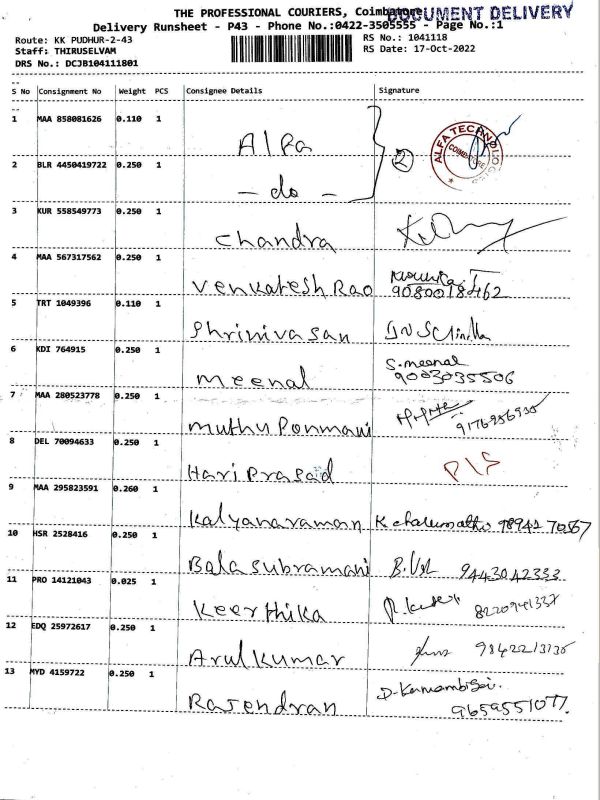 THE PROFESSIONAL COURIERS, Coimbatore
DOCUMENT DELIVERY
Delivery Runsheet - P43 - Phone No.:0422-3505555 - Page No.:1
Route: KK PUDHUR-2-43
Staff: THIRUSELVAM
DRS No.: DCJB104111801
RS No.: 1041118
RS Date: 17-Oct-2022
S No Consignment No Weight PCS Consignee Details Signature
1 MAA 858081626 0.110 1 Alfa
2 ALFA TECHNOLOGIES COIMBATORE
2 BLR 4450419722 0.250 1 - do -
3 KUR 558549773 0.250 1 Chandra
4 MAA 567317562 0.250 1 Venkatesh Rao 9080018462
5 TRT 1049396 0.110 1 Shrinivasan
6 KDI 764915 0.250 1 Meenal S. meenal 9003035506
7 MAA 280523778 0.250 1 Muthu Ponmani
8 DEL 70094633 0.250 1 Hari Prasad P/S
9 MAA 295823591 0.260 1 Kalyanaraman
10 HSR 2528416 0.250 1 Bala subramani 9443042333
11 PRO 14121043 0.025 1 Keerthika 8220941337
12 EDQ 25972617 0.250 1 Arul Kumar
13 MYD 4159722 0.250 1 Rajendran 9659551077.